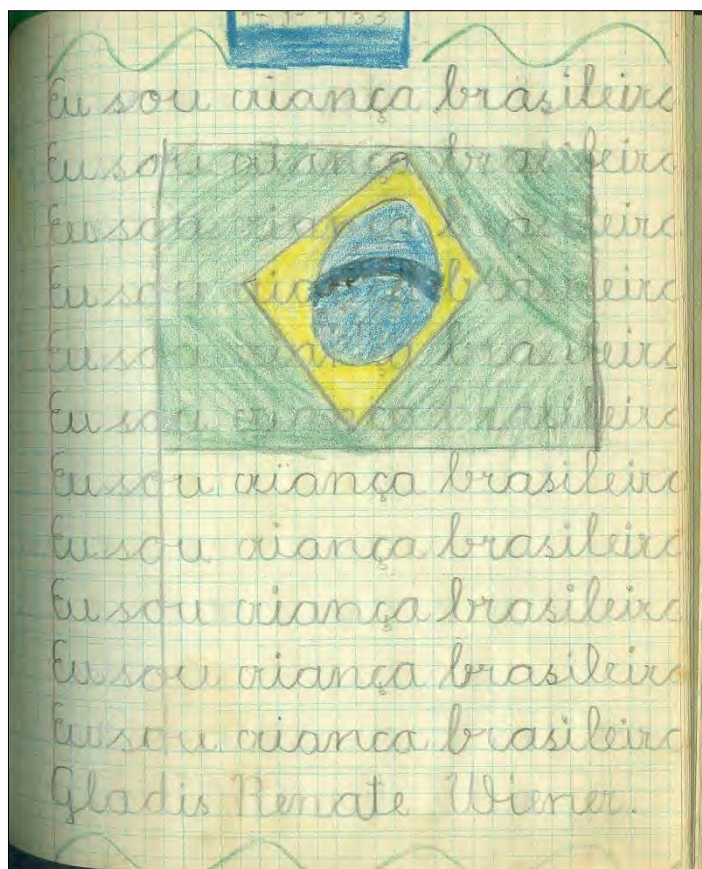 Eu sou criança brasileira
Eu sou criança brasileira
Eu sou criança brasileira
Eu sou criança brasileira
Eu sou criança brasileira
Eu sou criança brasileira
Eu sou criança brasileira
Eu sou criança brasileira
Eu sou criança brasileira
Eu sou criança brasileira
Eu sou criança brasileira
Gladis Renate Wiener.